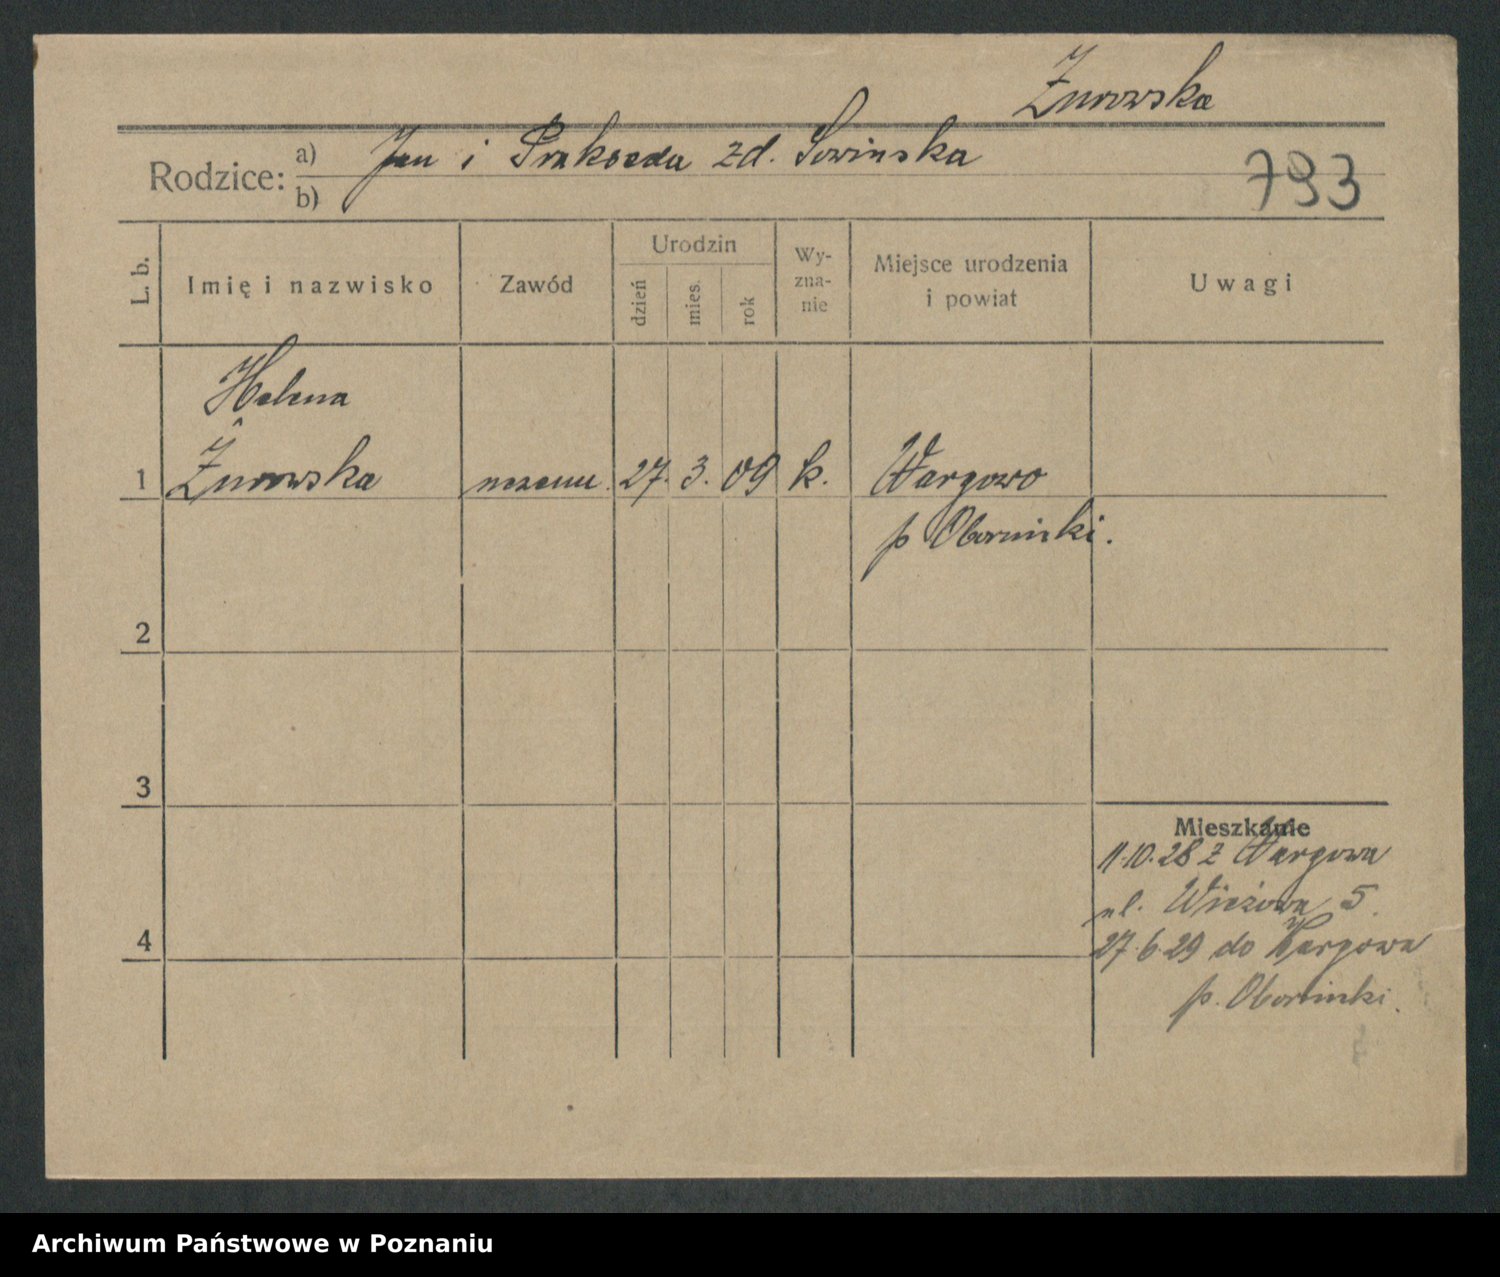 Żurowska
Rodzice: a) Jan i Prakseda zd. Sowinska
b)
793
L. b.
Imię i nazwisko
Zawód
Urodzin
dzień
mies.
rok
Wy-
zna-
nie
Miejsce urodzenia
i powiat
Uwagi
Helena
1 Żurowska 27. 3. 09 k. Wargowo
p Oborniki.
2
3
Mieszkanie
11.10.28 z Wargowa
ul. Wieżowa 5.
27.6.29 do Wargowa
4
p. Oborniki.
Archiwum Państwowe w Poznaniu